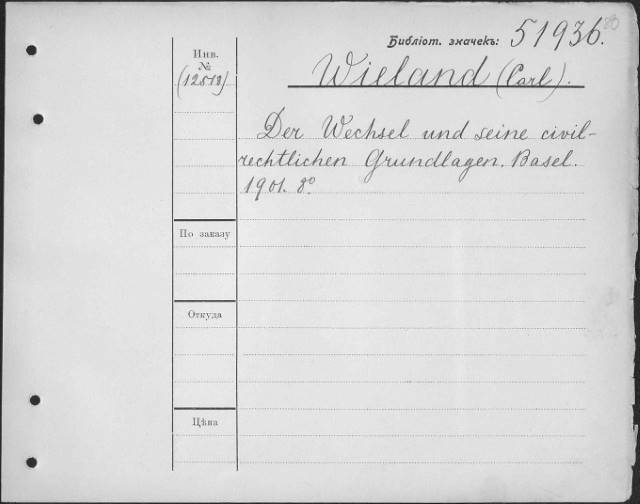 Библіот. значекъ: 51936.
Инв.
№
(12518)
Wieland (Carl).
Der Wechsel und seine civil-
rechtlichen Grundlagen. Basel.
1901. 8°
По заказу
Откуда
Цѣна